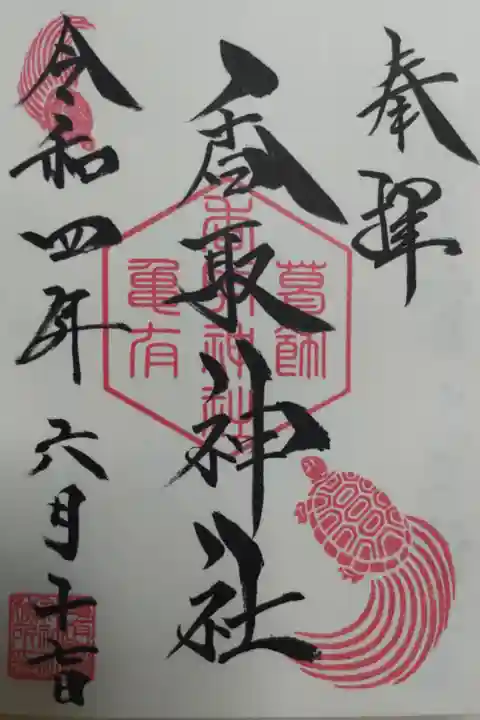 奉拝
葛飾
香取神社
香取神社
亀有
令和四年六月十